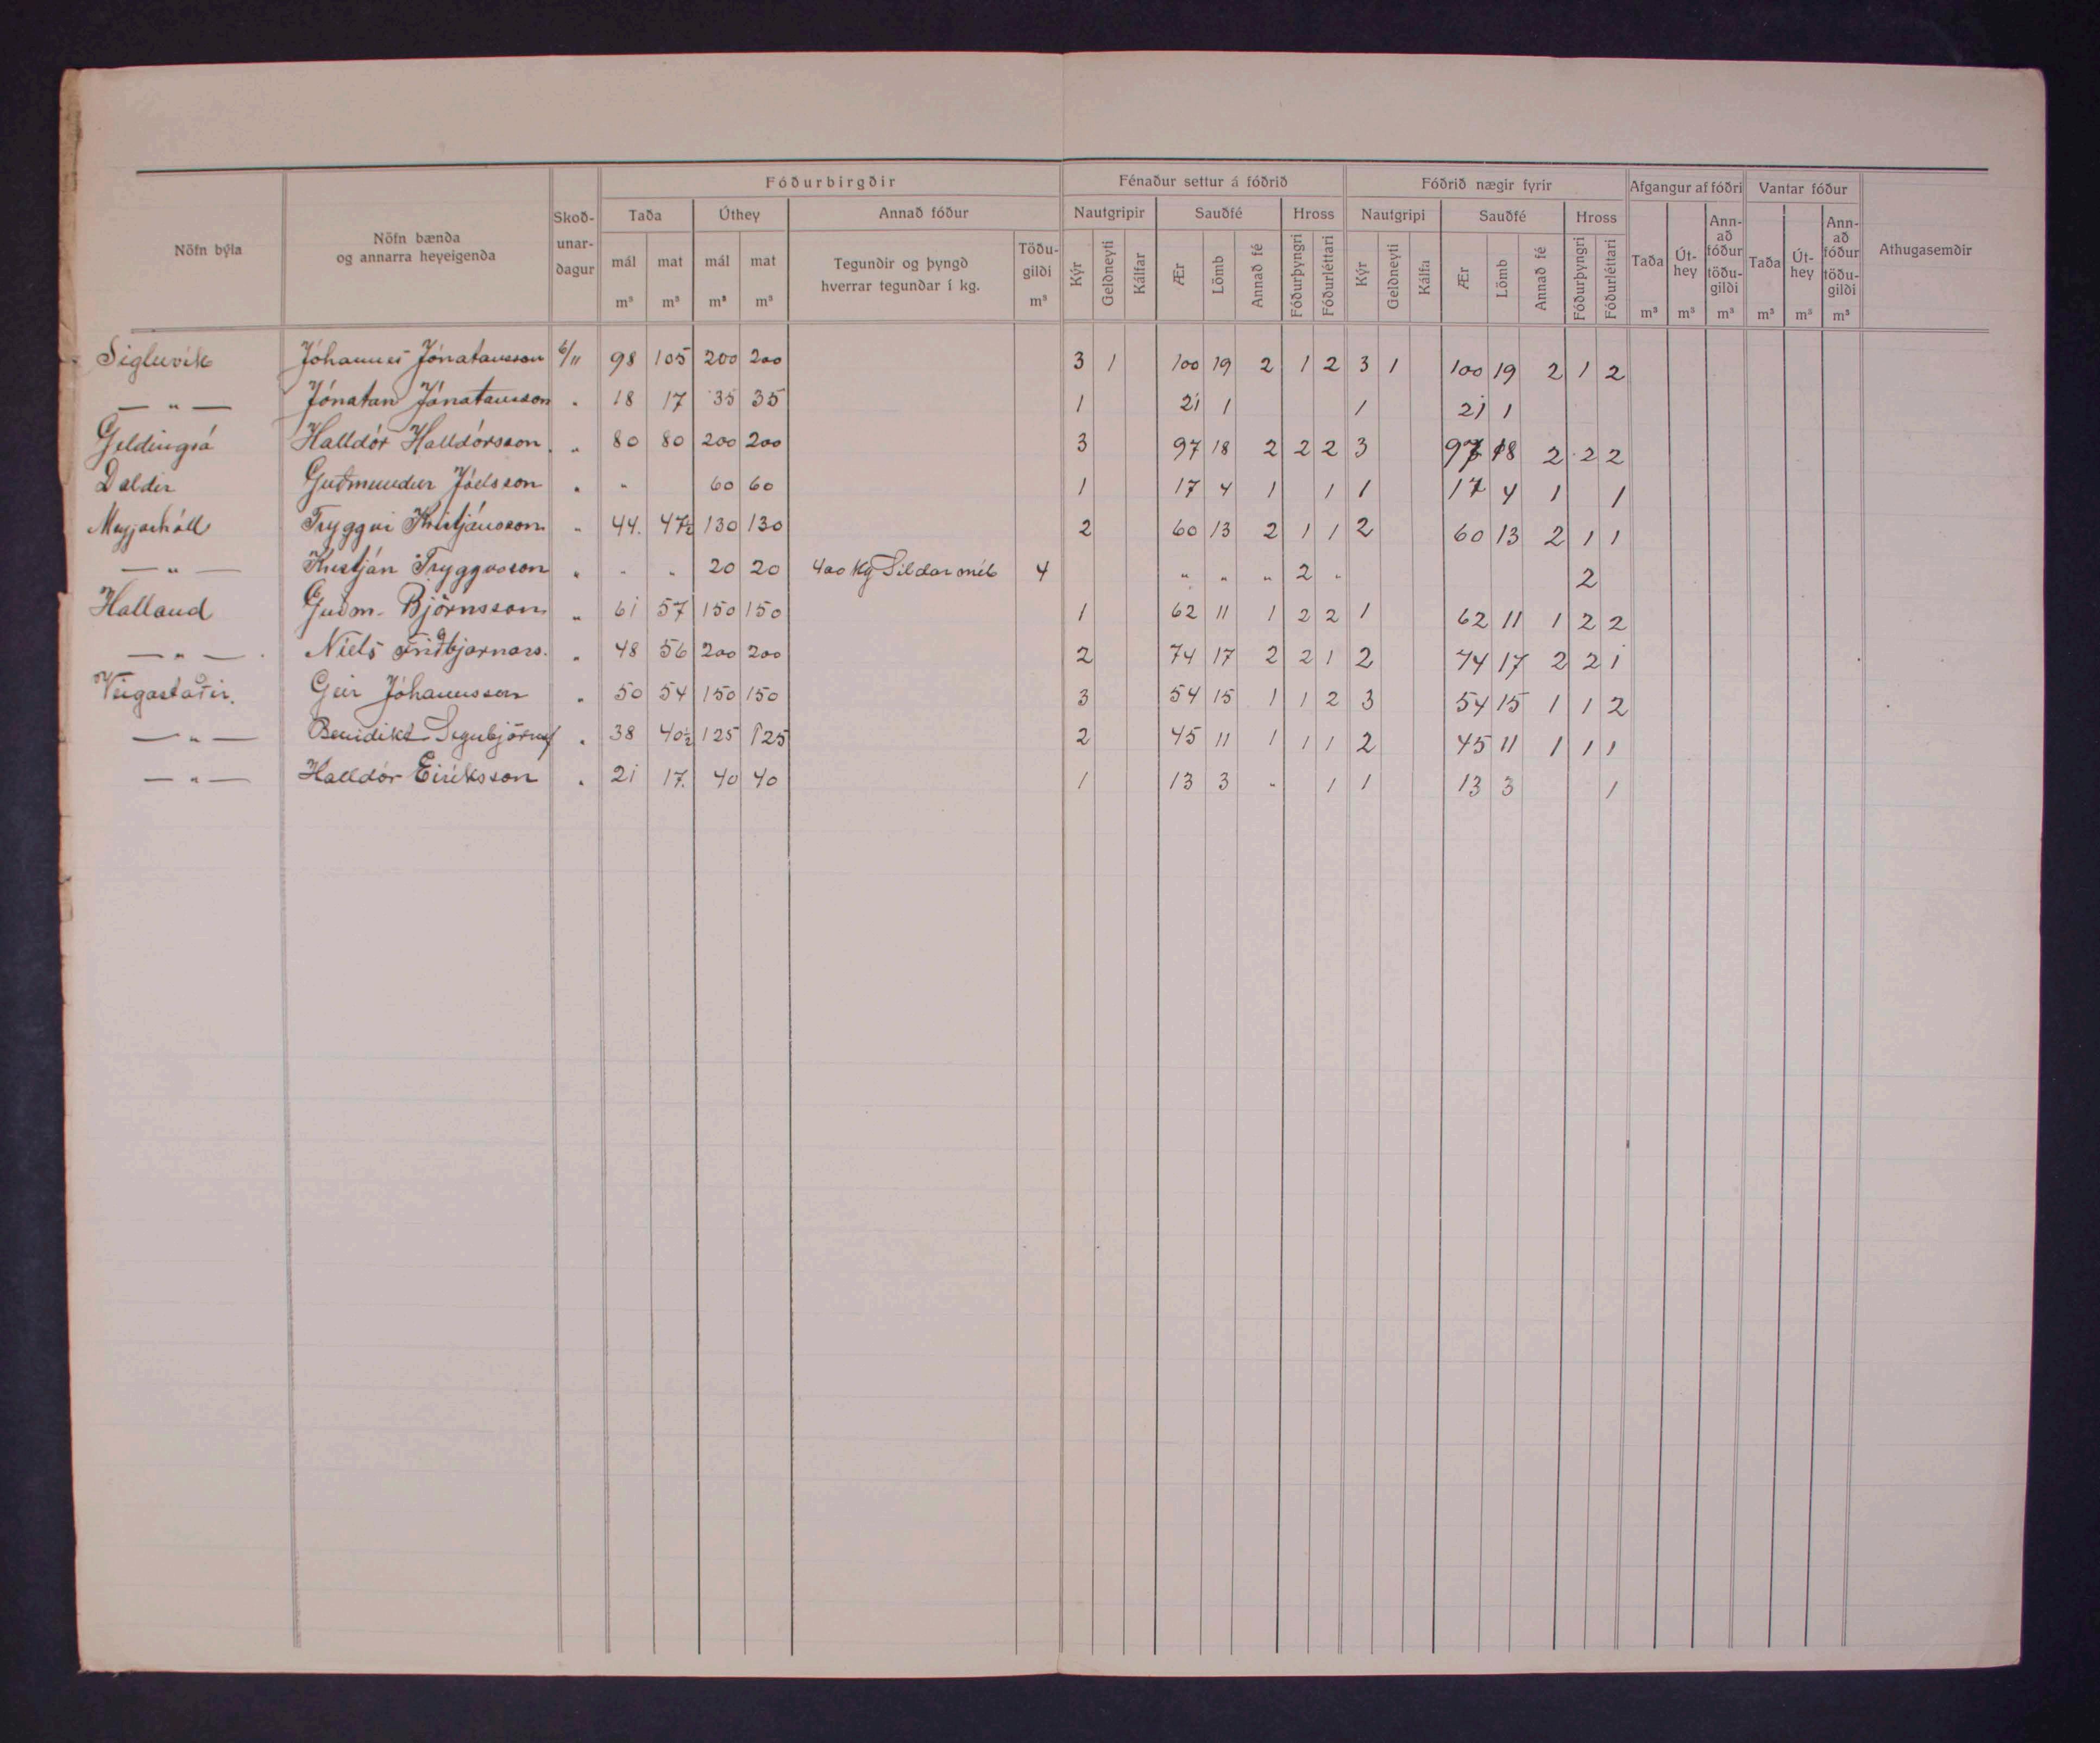 Fóðurbirgðir Fénaður settur á fóðrið Fóðrið nægir fyrir Afgangur af fóðri Vantar fóður
Nöfn býla Nöfn bænda og annarra heyeigenda Skoð-unar-dagur Taða Úthey Annað fóður Nautgripir Sauðfé Hross Nautgripi Sauðfé Hross Taða Út-hey Ann-að fóður töðu-gildi Taða Út-hey Ann-að fóður töðu-gildi Athugasemdir
mál m³ mat m³ mál m³ mat m³ Tegundir og þyngd hverrar tegundar í kg. Töðu-gildi m³ Kýr Geldneyti Kálfar Ær Lömb Annað fé Fóðurþyngri Fóðurléttari Kýr Geldneyti Kálfa Ær Lömb Annað fé Fóðurþyngri Fóðurléttari m³ m³ m³ m³ m³ m³
Sigluvík Jóhannes Jónatansson 6/11 98 105 200 200 3 1 100 19 2 1 2 3 1 100 19 2 1 2
— " — Jónatan Jónatansson " 18 17 35 35 1 21 1 1 21 1
Geldingsá Halldór Halldórsson " 80 80 200 200 3 97 18 2 2 2 3 97 18 2 2 2
Dáldir Guðmundur Jóelsson " " 60 60 1 17 4 1 1 1 17 4 1 1
Meyjarhóll Tryggvi Kristjánsson " 44. 47½ 130 130 2 60 13 2 1 1 2 60 13 2 1 1
— " — Kristján Tryggvason " " " 20 20 400 kg Síldarmél 4 " " " 2 " 2
Halland Guðm. Björnsson " 61 57 150 150 1 62 11 1 2 2 1 62 11 1 2 2
— " — Níels Friðbjarnars. " 48 56 200 200 2 74 17 2 2 1 2 74 17 2 2 1
Veigastaðir. Geir Jóhannsson " 50 54 150 150 3 54 15 1 1 2 3 54 15 1 1 2
— " — Benidikt Sigubjörns " 38 40½ 125 125 2 45 11 1 1 1 2 45 11 1 1 1
— " — Halldór Eiríksson " 21 17. 40 40 1 13 3 " 1 1 13 3 1